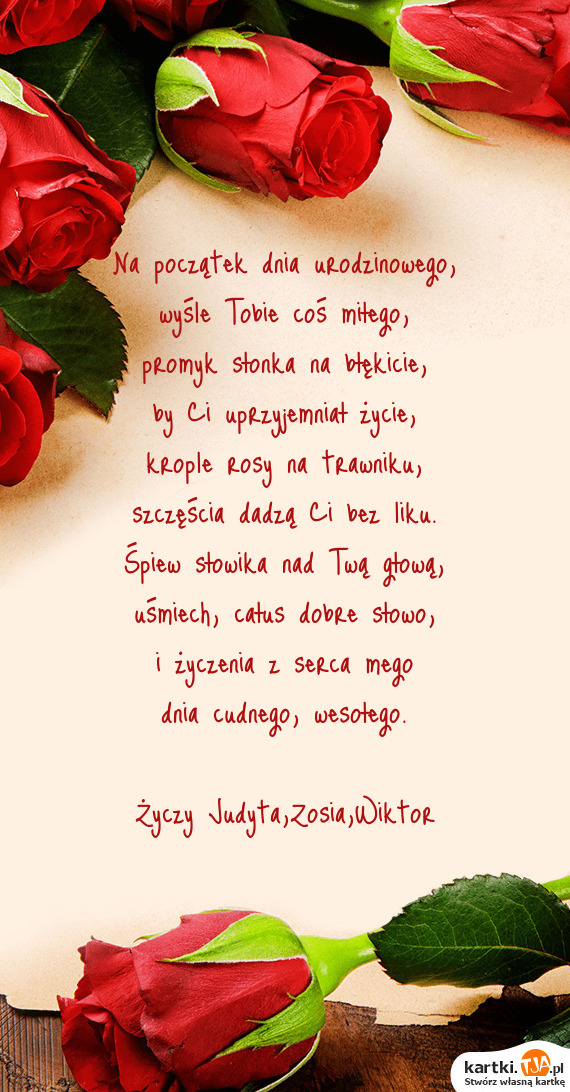 Na początek dnia urodzinowego,
wyśle Tobie coś miłego,
promyk słonka na błękicie,
by Ci uprzyjemniał życie,
krople rosy na trawniku,
szczęścia dadzą Ci bez liku.
Śpiew słowika nad Twą głową,
uśmiech, całus dobre słowo,
i życzenia z serca mego
dnia cudnego, wesołego.
Życzy Judyta,Zosia,Wiktor
kartki.TJA.pl
Stwórz własną kartkę